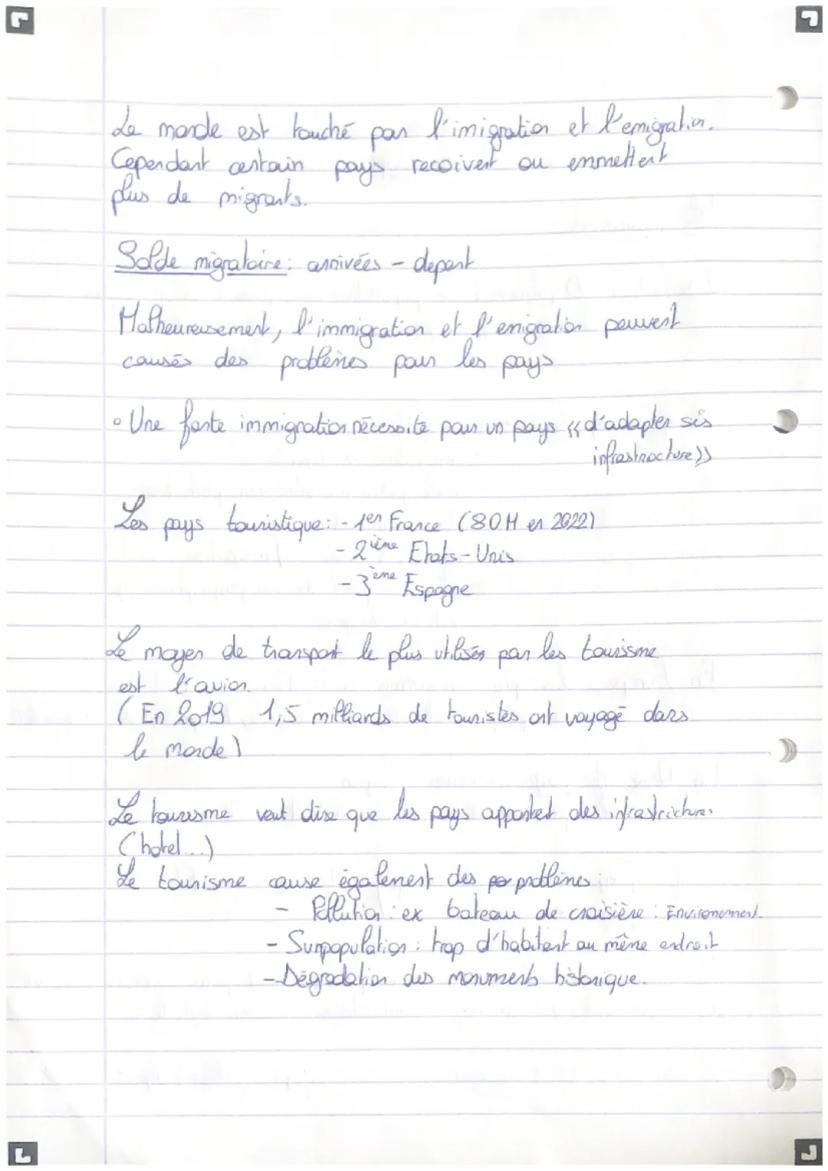 Le monde est touché par l'imigration et l'emigration.
Cependant certain pays recoivent ou emmettent
plus de migrants.
Solde migratoire : arrivées - depart
Malheureusement, l'immigration et l'emigration peuvent
causés des problèmes pour les pays
• Une forte immigration nécessite pour un pays « d'adapter ses
infrastructure »
Les pays touristique : - 1er France (80M en 2022)
- 2ième Etats-Unis
- 3ème Espagne
Le moyen de transport le plus utilisés par les tourisme
est l'avion.
( En 2019 1,5 milliards de touristes ont voyagé dans
le monde )
Le tourisme veut dire que les pays apportent des infrastricture.
( hotel...)
Le tourisme cause également des problèmes :
- Pollution : ex bateau de croisière : Environement.
- Surpopulation : trop d'habitant au même endroit
- Dégradation des monuments historique.